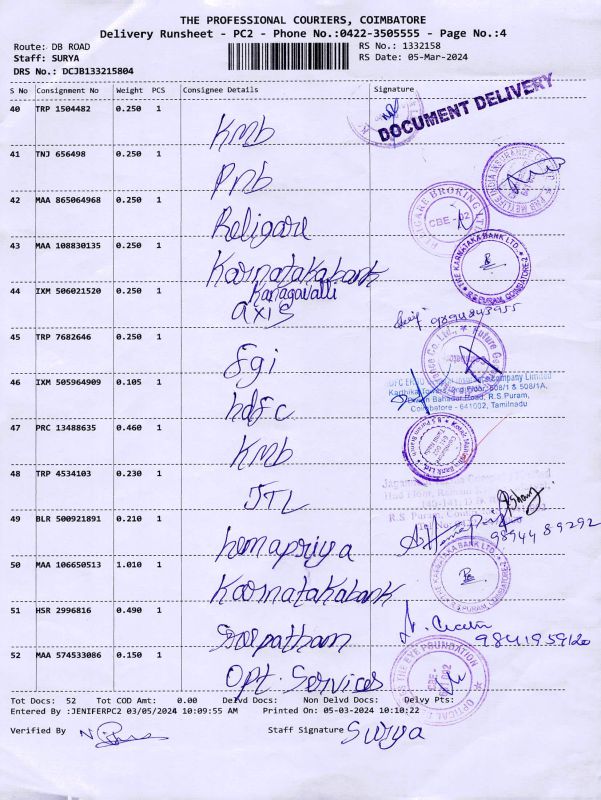 THE PROFESSIONAL COURIERS, COIMBATORE
Delivery Runsheet - PC2 - Phone No.:0422-3505555 - Page No.:4
Route: DB ROAD
RS No.: 1332158
Staff: SURYA
RS Date: 05-Mar-2024
DRS No.: DCJB133215804
S No Consignment No Weight PCS Consignee Details Signature
DOCUMENT DELIVERY
40 TRP 1504482 0.250 1 Kmb
41 TNJ 656498 0.250 1 Pnb
42 MAA 865064968 0.250 1 Religare
RELIGARE BROKING LTD
CBE - 02
43 MAA 108830135 0.250 1 Karnatakabank
THE KARNATAKA BANK LTD.
R.S PURAM, COIMBATORE-2
44 IXM 506021520 0.250 1 Kanagavalli
axis
45 TRP 7682646 0.250 1 fgi
46 IXM 505964909 0.105 1 hdfc
Company Limited
Karthika Towers, 2nd Floor, 508/1 & 508/1A,
Bahadur Road, R.S.Puram,
Coimbatore - 641002, Tamilnadu
47 PRC 13488635 0.460 1 Kmb
48 TRP 4534103 0.230 1 JTL
R.S. Puram,
49 BLR 500921891 0.210 1 hemapriya
9894489292
50 MAA 106650513 1.010 1 Karnatakabank
THE KARNATAKA BANK LTD.
R.S PURAM, COIMBATORE-2
51 HSR 2996816 0.490 1
9841959120
52 MAA 574533086 0.150 1 Opt. Services
THE EYE FOUNDATION
Tot Docs: 52 Tot COD Amt: 0.00 Delvd Docs: Non Delvd Docs: Delvy Pts:
Entered By :JENIFERPC2 03/05/2024 10:09:55 AM Printed On: 05-03-2024 10:10:22
Verified By
Staff Signature Surya